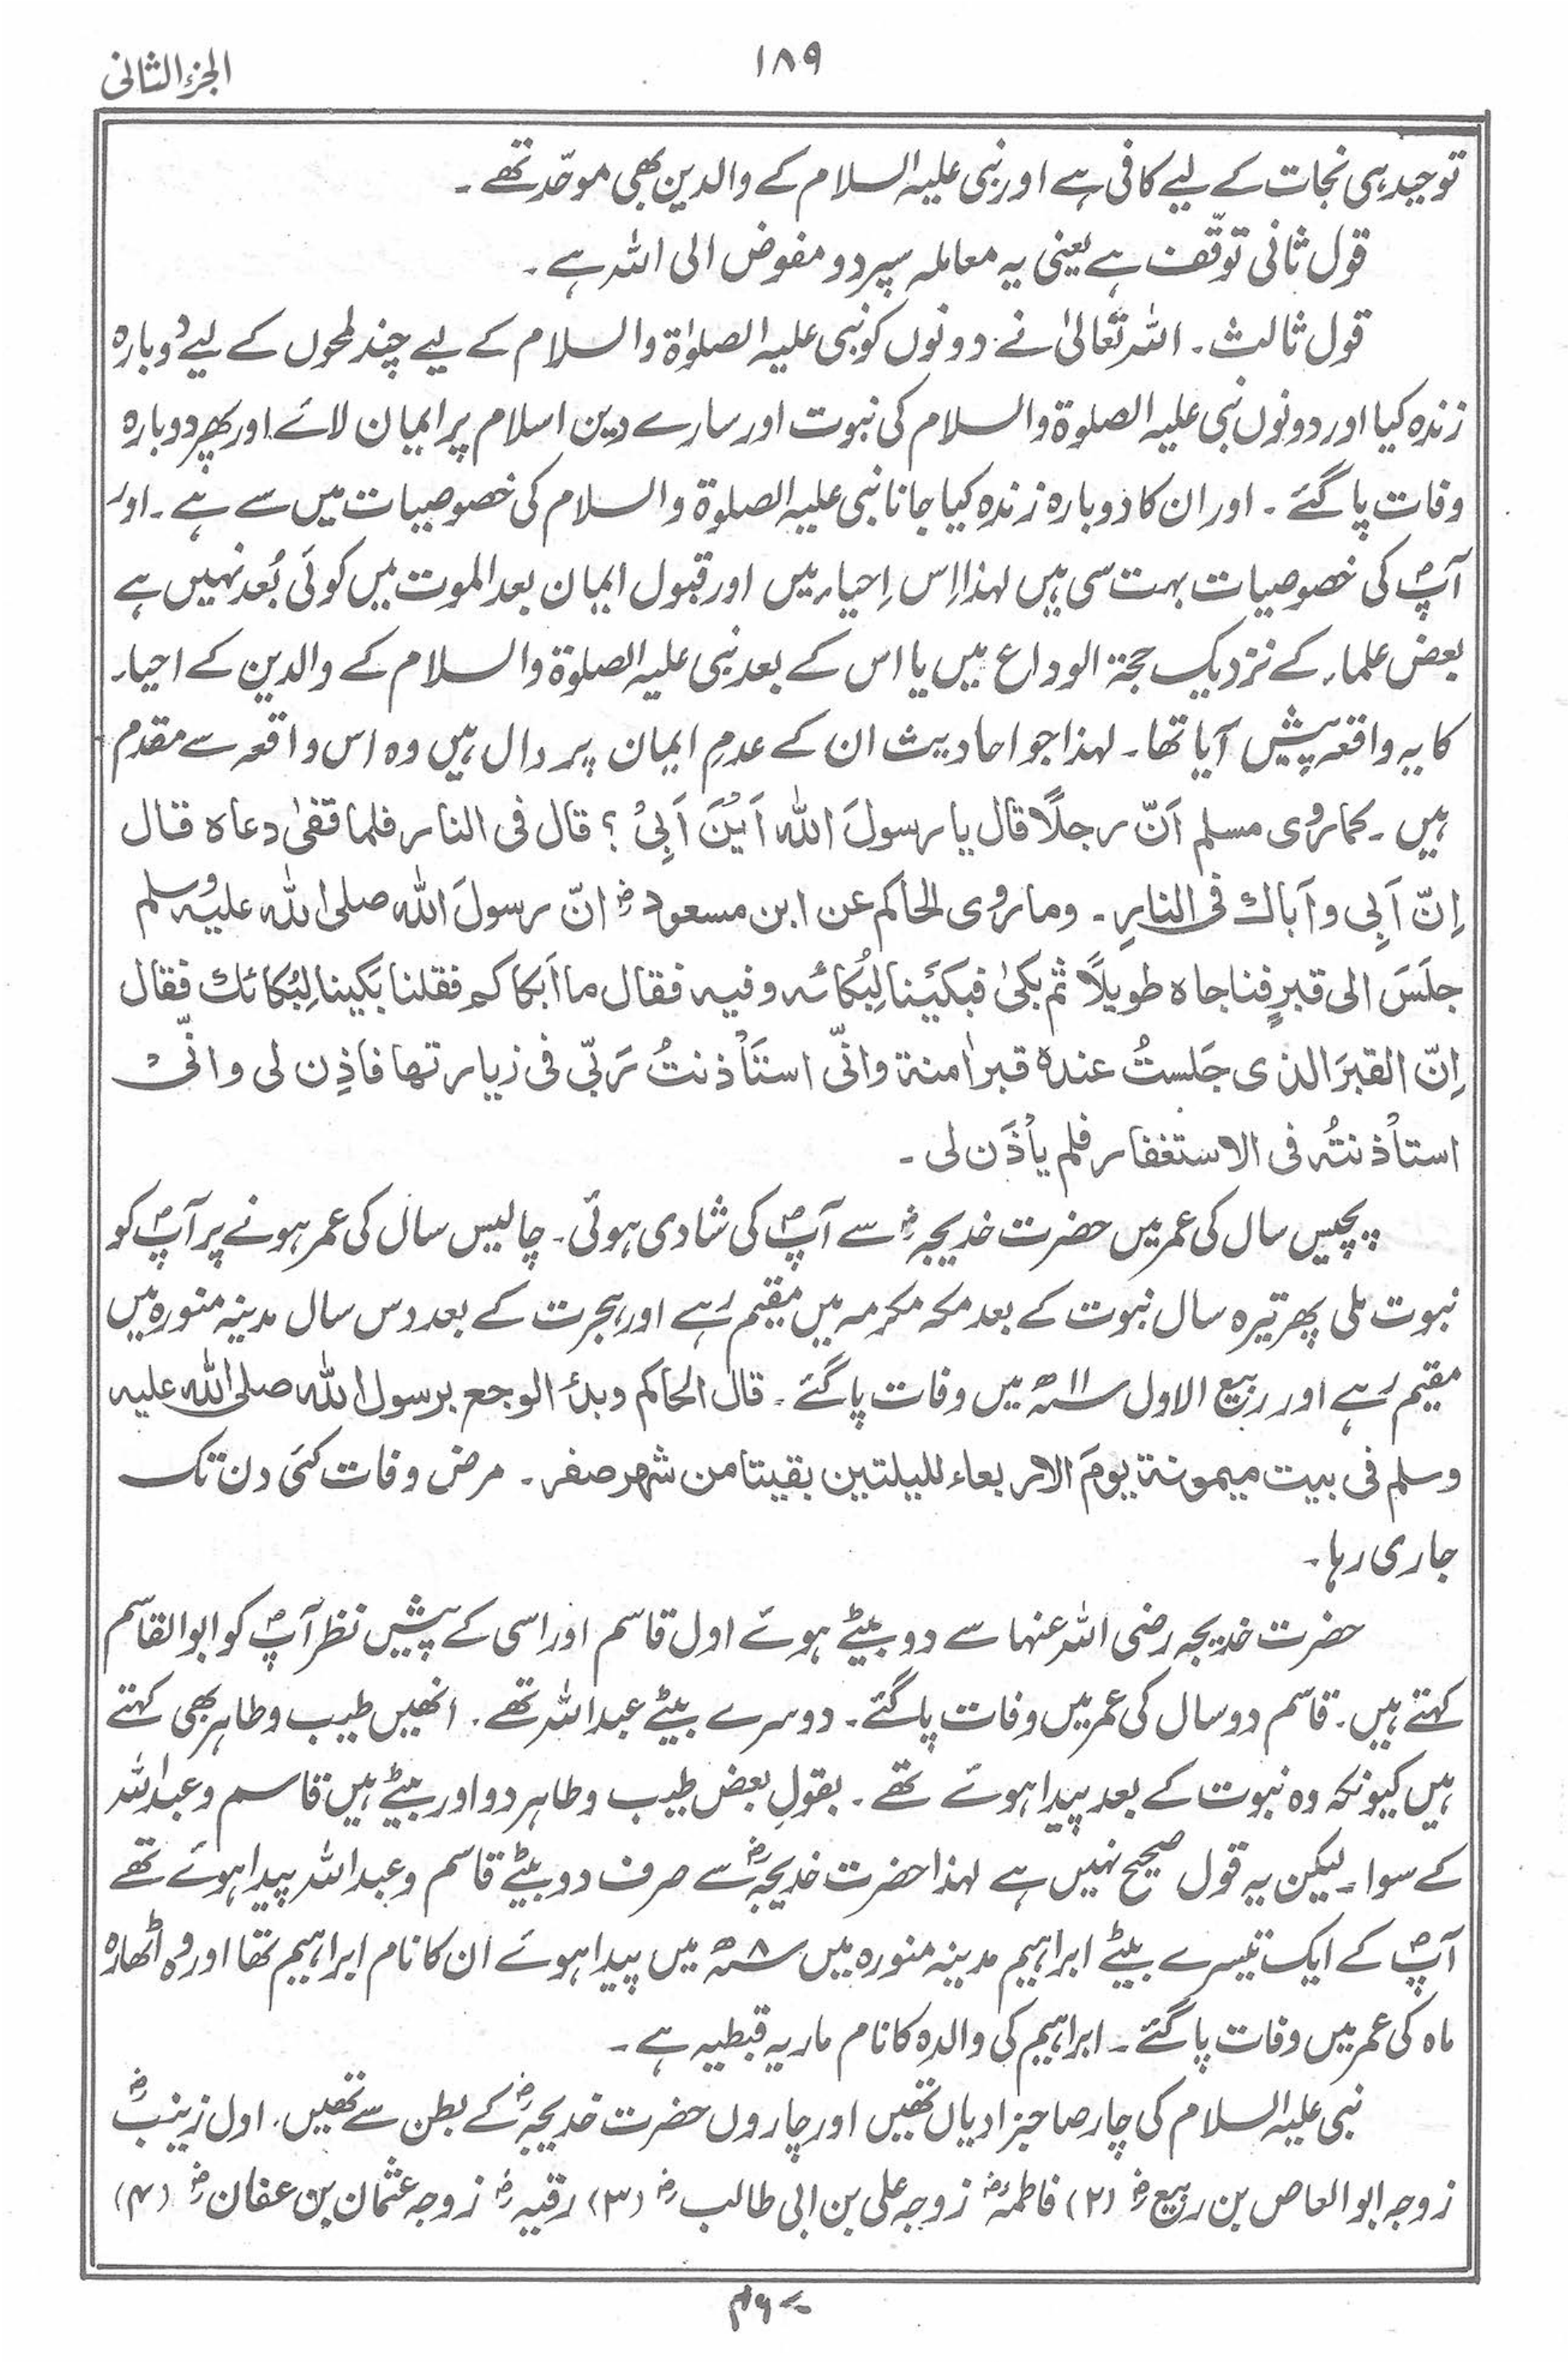 الجزء الثانی
۱۸۹
توحید ہی نجات کے لیے کافی ہے اور نبی علیہ السلام کے والدین بھی موحّد تھے ۔
قول ثانی توقّف ہے یعنی یہ معاملہ سپرد و مفوض الی اللہ ہے ۔
قول ثالث ۔ اللہ تعالیٰ نے دونوں کو نبی علیہ الصلوٰۃ والسلام کے لیے چند لمحوں کے لیے دُوبارہ
زندہ کیا اور دونوں نبی علیہ الصلوۃ والسلام کی نبوت اور سارے دین اسلام پر ایمان لائے اور پھر دوبارہ
وفات پاگئے ۔ اور ان کا دوبارہ زندہ کیا جانا نبی علیہ الصلوۃ والسلام کی خصوصیات میں سے ہے ۔ اور
آپؐ کی خصوصیات بہت سی ہیں لہذا اِس اِحیاء میں اور قبول ایمان بعد الموت میں کوئی بُعد نہیں ہے
بعض علماء کے نزدیک حجۃ الوداع میں یا اس کے بعد نبی علیہ الصلوۃ والسلام کے والدین کے احیاء
کا یہ واقعہ پیش آیا تھا ۔ لہذا جو احادیث ان کے عدمِ ایمان پر دال ہیں وہ اس واقعہ سے مقدم
ہیں ۔ کما روٰی مسلم اَنّ رجلًا قال یا رسولَ اللہ اَیْنَ اَبِیْ ؟ قال فی النار فلما قفیٰ دعاہ قال
اِنّ اَبِی و اَباك فی النارِ ۔ وما روٰی الحاکم عن ابن مسعودؓ انّ رسولَ اللہ صلی اللہ علیہ وسلم
جلَسَ الی قبرٍ فناجاہ طویلًا ثم بکیٰ فبکَیْنا لِبُکائہ و فیہ فقال ما اَبکاکم فقلنا بَکینا لِبُکائك فقال
اِنّ القبرَ الذی جَلستُ عندہ قبر اٰمنۃ وانّی استَأذنتُ رَبّی فی زیارتھا فاَذِن لی و انّیْ
استأذنتُہ فی الاستغفار فلم یأذَن لی ۔
پچیس سال کی عمر میں حضرت خدیجہؓ سے آپؐ کی شادی ہوئی ۔ چالیس سال کی عمر ہونے پر آپؐ کو
نبوت ملی پھر تیرہ سال نبوت کے بعد مکہ مکرمہ میں مقیم رہے اور ہجرت کے بعد دس سال مدینہ منورہ میں
مقیم رہے اور ربیع الاول ۱۱ھ میں وفات پاگئے ۔ قال الحاکم وبدأ الوجع برسول اللہ صلی اللہ علیہ
وسلم فی بیت میمونۃ یومَ الاربعاء للیلتین بقیتا من شہر صفر ۔ مرض وفات کئی دن تک
جاری رہا ۔
حضرت خدیجہ رضی اللہ عنہا سے دو بیٹے ہوئے اول قاسم اور اسی کے پیش نظر آپؐ کو ابو القاسم
کہتے ہیں ۔ قاسم دو سال کی عمر میں وفات پاگئے ۔ دوسرے بیٹے عبد اللہ تھے ۔ انھیں طیب و طاہر بھی کہتے
ہیں کیونکہ وہ نبوت کے بعد پیدا ہوئے تھے ۔ بقولِ بعض طیب و طاہر دو اور بیٹے ہیں قاسم و عبد اللہ
کے سوا ۔ لیکن یہ قول صحیح نہیں ہے لہذا حضرت خدیجہؓ سے صرف دو بیٹے قاسم و عبد اللہ پیدا ہوئے تھے
آپؐ کے ایک تیسرے بیٹے ابراہیم مدینہ منورہ میں ۸ھ میں پیدا ہوئے ان کا نام ابراہیم تھا اور وہ اٹھارہ
ماہ کی عمر میں وفات پاگئے ۔ ابراہیم کی والدہ کا نام ماریہ قبطیہ ہے ۔
نبی علیہ السلام کی چار صاحبزادیاں تھیں اور چاروں حضرت خدیجہؓ کے بطن سے تھیں ۔ اول زینبؓ
زوجہ ابو العاص بن ربیعؓ (۲) فاطمہؓ زوجہ علی بن ابی طالبؓ (۳) رقیہؓ زوجہ عثمان بن عفانؓ (۴)